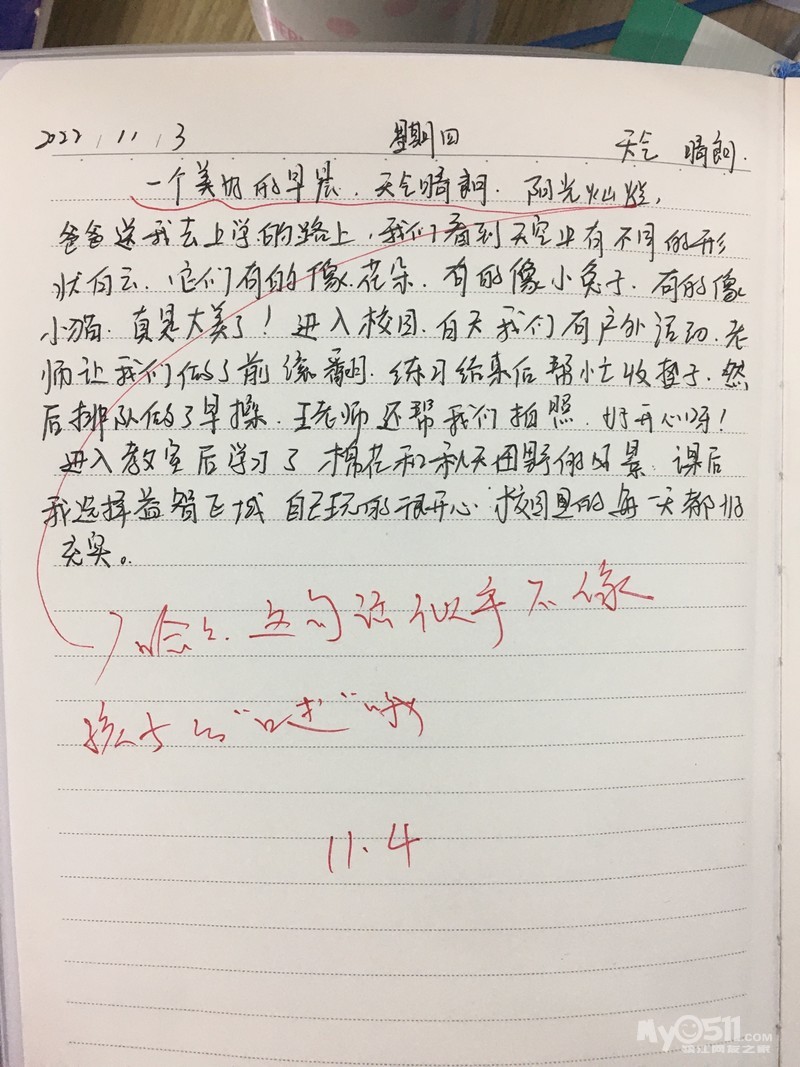 2022.11.3 星期四 天气 晴朗.
一个美好的早晨.天气晴朗.阳光灿烂,
爸爸送我去上学的路上,我们看到天空中有不同的形
状白云.它们有的像花朵.有的像小兔子.有的像
小猫.真是太美了!进入校园.白天我们有户外活动.老
师让我们做了前滚翻.练习结束后帮忙收垫子.然
后排队做了早操.王老师还帮我们拍照.好开心呀!
进入教室后学习了棉花和秋天田野的风景.课后
我选择益智区域 自己玩的很开心.校园里的每一天都好
充实。
哈哈.这句话似乎不像
孩子的"口述"哦
11.4
My0511.COM
镇江网友之家